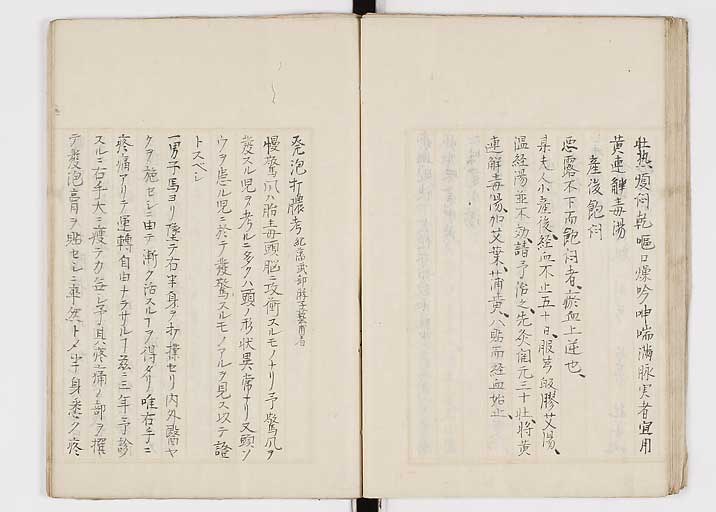 壮熱煩悶乾嘔口燥吟呻喘満脉実者宜用
黄連解毒湯
産後飽悶
悪露不下而飽悶者、瘀血上逆也、
某夫人小産後、経血不止五十日、服芎皈膠艾湯、
温経湯並不効、請予治之、先灸関元三十壮、将黄
連解毒湯、加艾葉、蒲黄、八貼而経血始止、
発泡打膿考
慢驚風ハ胎毒頭脳ニ攻衝スルモノナリ予驚風ヲ
発スル児ヲ考ルニ多クハ頭ノ形状異常ナリ又頭ノ
ウヲ患ル児ニ於テ発驚スルモノアルヲ見ス以テ證
トスベシ
一男子馬ヨリ墜テ右半身ヲ打撲セリ内外醫ヤ
クヲ施セシニ由テ漸ク治スルヿヲ得タリ唯右手ニ
疼痛アリテ運轉自由ナラサルヿ茲ニ三年予診
スルニ右手大ニ痩テ力無シ予其疼痛ノ部ヲ撰
テ發泡膏ヲ貼セシニ率然トメ半身悉ク疼